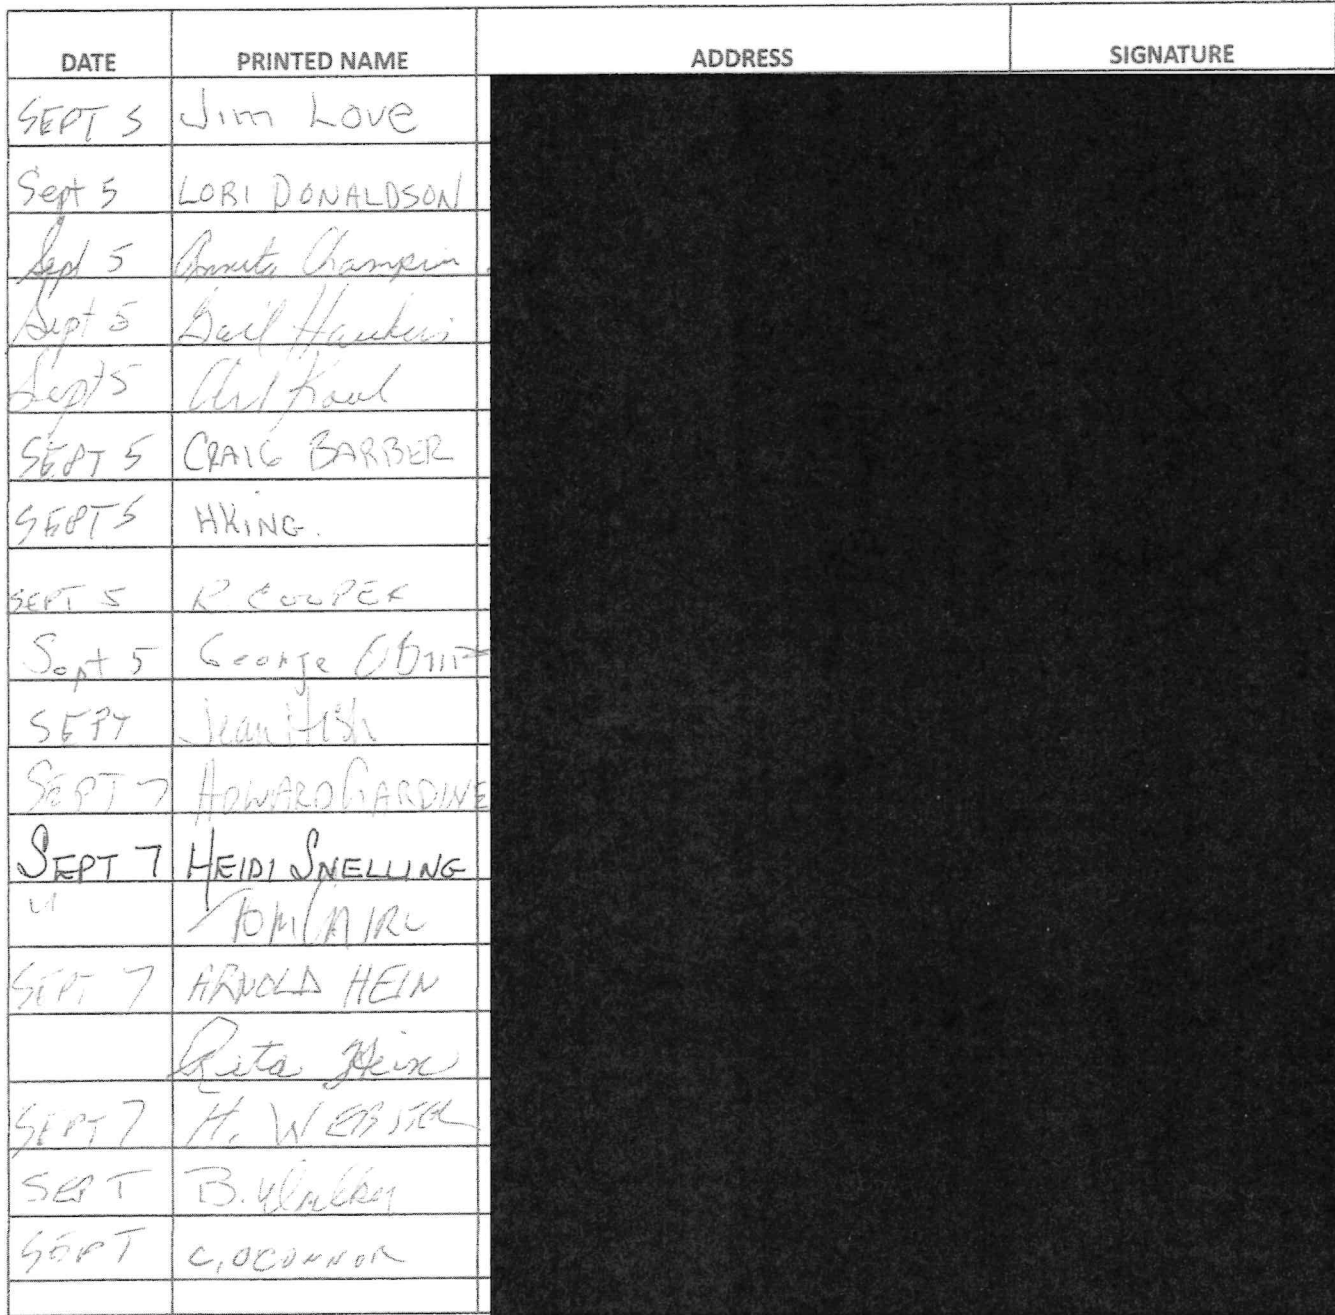 DATE PRINTED NAME ADDRESS SIGNATURE
SEPT 5 Jim Love
Sept 5 LORI DONALDSON
Sept 5 Champion
Sept 5 Gail Hawkins
Sept 5
SEPT 5 CRAIG BARBER
SEPT 5 HKING.
SEPT 5 R COOPER
Sept 5 George
SEPT Jean
SEPT 7 HOWARD GARDINE
SEPT 7 HEIDI SNELLING
" TOM
SEPT 7 ARNOLD HEIN
Rita Hein
SEPT 7 H. WEBSTER
SEPT B.
SEPT C, OCONNOR